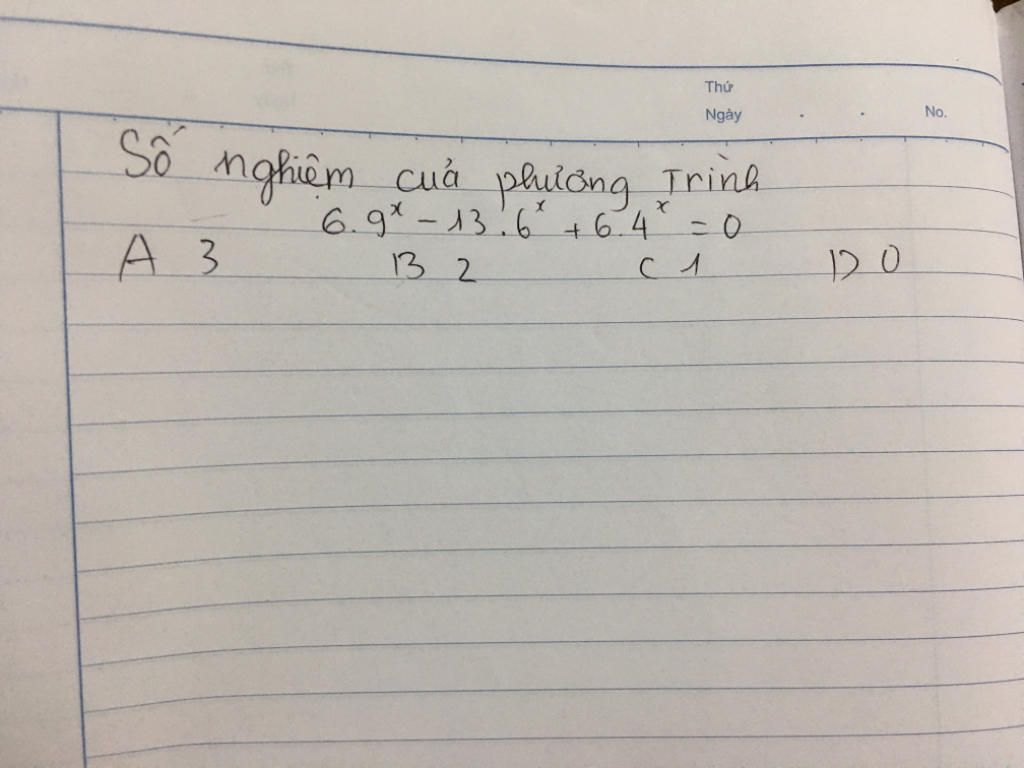 Thứ
Ngày . . No.
Số nghiệm của phương Trình
6.9^x - 13.6^x + 6.4^x = 0
A 3 B 2 C 1 D 0